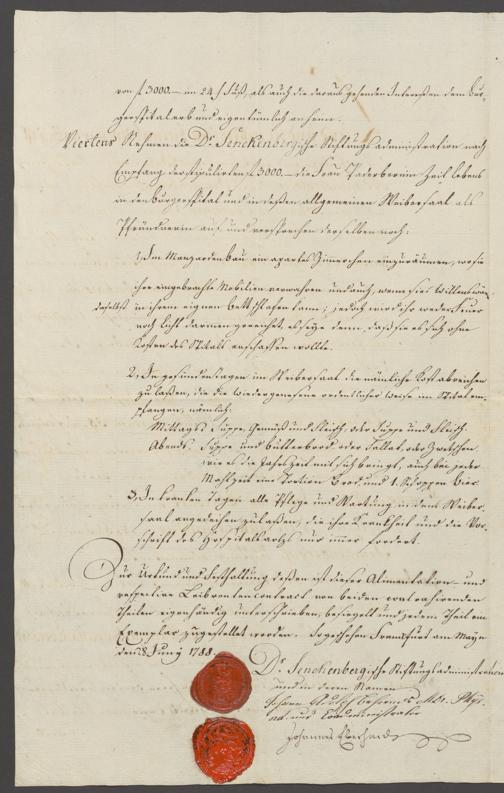 von f 3000.— im 24 f Fuß, als auch die daraus gehenden Interessen dem Bür-
gerspital erb und eigentümlich anheim.
Viertens Nehmen die Dr. Senckenbergische Stiftungs administration nach
Empfang der stipulirten f 3000.— die Frau Paderbornin Zeit lebens
in den Burgerspital und in deßen allgemeinen Weibersaal als
Pfründnerin auf, und versprechen derselben noch:
1, Im Manzarden bau ein apartes Zimerchen einzuräumen, wo sie
ihre eingebrachte Mobilien verwahren und auch, wenn sie es Willens wäre
daselbst in ihrem eignen Bett schlafen kann; jedoch wird ihr weder Feuer
noch Licht darinnen gereichet, es seye denn, daß sie es sich ohne
Kosten des Spitals anschaffen wollte.
2, In gesunden Tagen im Weibersaal die nämliche Kost abreichen
zu laßen, die die Wiedergenesene ordentlicher Weise im Spital em-
pfangen, nämlich:
Mittags Suppe, Gemüß und Fleisch, oder Suppe und Fleisch.
Abends. Suppe und Butterbrod oder Sallat, oder Zwetschen
wie es die Jahrszeit mit sich bringt, auch bei jeder
Mahlzeit eine Portion Brod und 1. Schoppen Bier.
3, In kranken Tagen alle Pflege und Wartung in dem Weiber-
saal angedeihen zu laßen, die ihre Krankheit und die Vor-
schrift des Hospitalarzts nur immer fordert.
Zur Urkund und Festhaltung deßen ist dieser Alimentation- und
respective Leibrenten Contract von beiden contrahirenden
Theilen eigenhändig unterschrieben, besiegelt und jedem Theil ein
Exemplar zugestellet worden. So geschehen Frankfurt am Mayn
den 28 Juny 1788.
Dr. Senckenbergische Stiftungsadministration
und in deren Namen
Johann Adolph Behrends Med. Dr. Phys.
ord. und Coadministrator
Johannes Eberhard